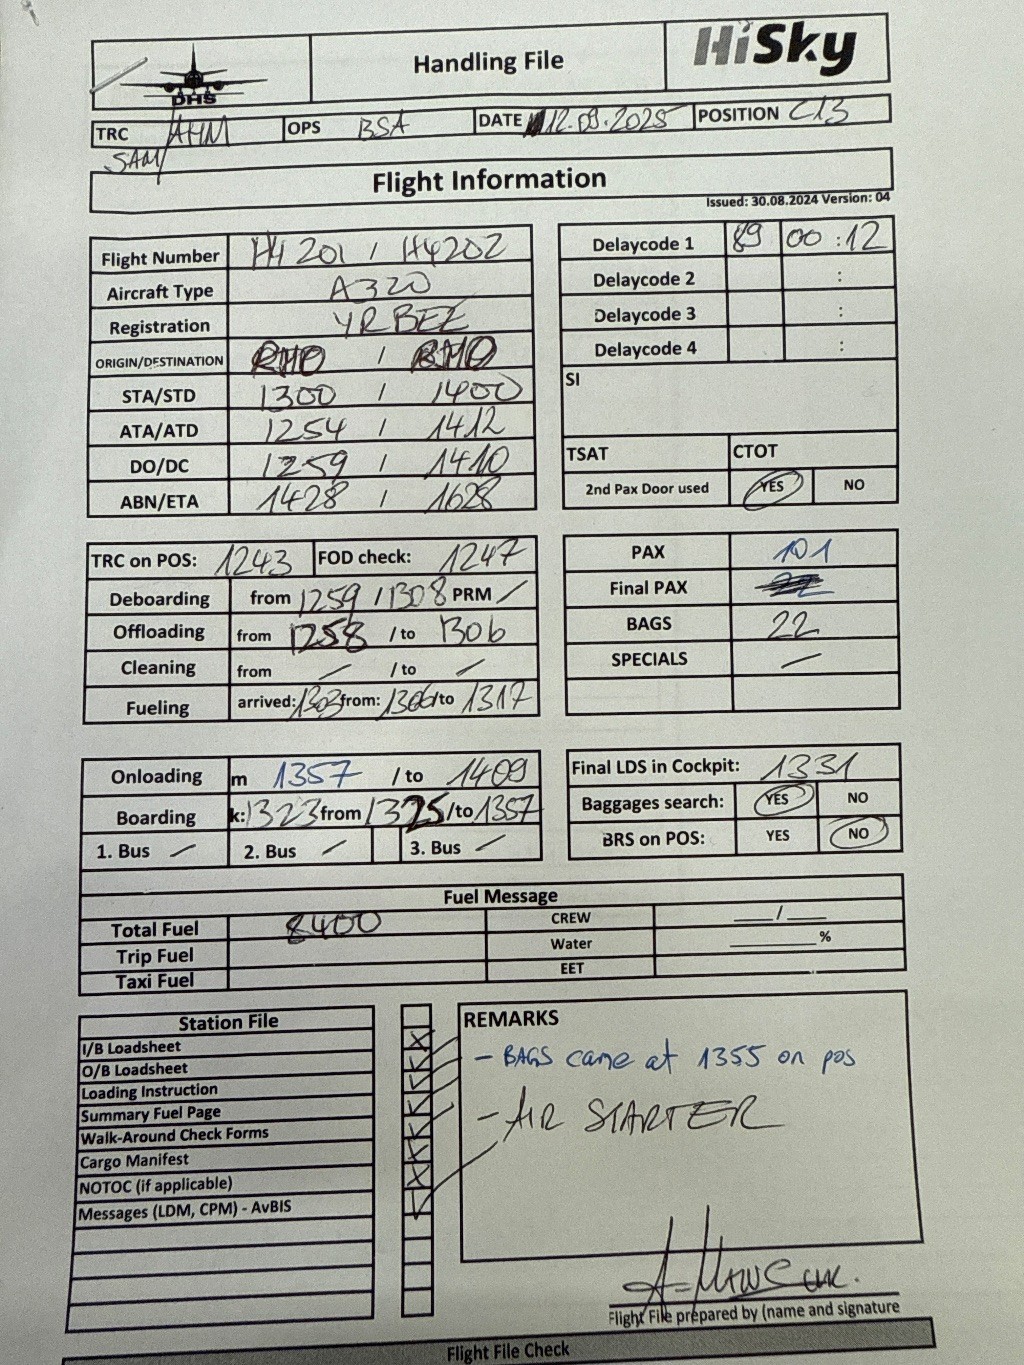 DHS
Handling File
HiSky
TRC AHM/ SAM OPS BSA DATE 12.09.2025 POSITION C13
Flight Information
Issued: 30.08.2024 Version: 04
Flight Number H4 201 / H4202
Aircraft Type A320
Registration YRBEE
ORIGIN/DESTINATION RMO / RMO
STA/STD 1300 / 1400
ATA/ATD 1254 / 1412
DO/DC 1259 / 1410
ABN/ETA 1428 / 1628
Delaycode 1 89 00 :12
Delaycode 2 :
Delaycode 3 :
Delaycode 4 :
SI
TSAT CTOT
2nd Pax Door used YES NO
TRC on POS: 1243 FOD check: 1247
Deboarding from 1259 / 1308 PRM /
Offloading from 1258 / to 1306
Cleaning from / / to /
Fueling arrived: 1303 from: 1306 /to 1317
PAX 101
Final PAX
BAGS 22
SPECIALS /
Onloading m 1357 / to 1409
Boarding k: 1323 from 1325 /to 1357
1. Bus / 2. Bus / 3. Bus /
Final LDS in Cockpit: 1331
Baggages search: YES NO
BRS on POS: YES NO
Fuel Message
Total Fuel 8400 CREW ___/___
Trip Fuel Water ______%
Taxi Fuel EET
Station File
I/B Loadsheet
O/B Loadsheet
Loading Instruction
Summary Fuel Page
Walk-Around Check Forms
Cargo Manifest
NOTOC (if applicable)
Messages (LDM, CPM) - AvBIS
REMARKS
- BAGS came at 1355 on pos
- AIR STARTER
Flight File prepared by (name and signature
Flight File Check